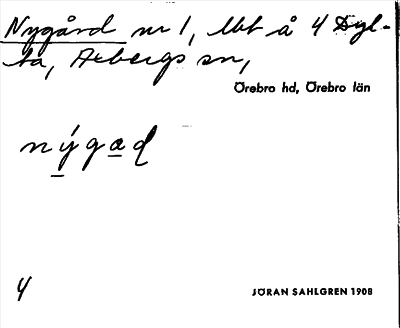 Nygård nr 1, lbt å 4 Dyl-
ta, Axbergs sn,
Örebro hd, Örebro län
nýgad
4
JÖRAN SAHLGREN 1908